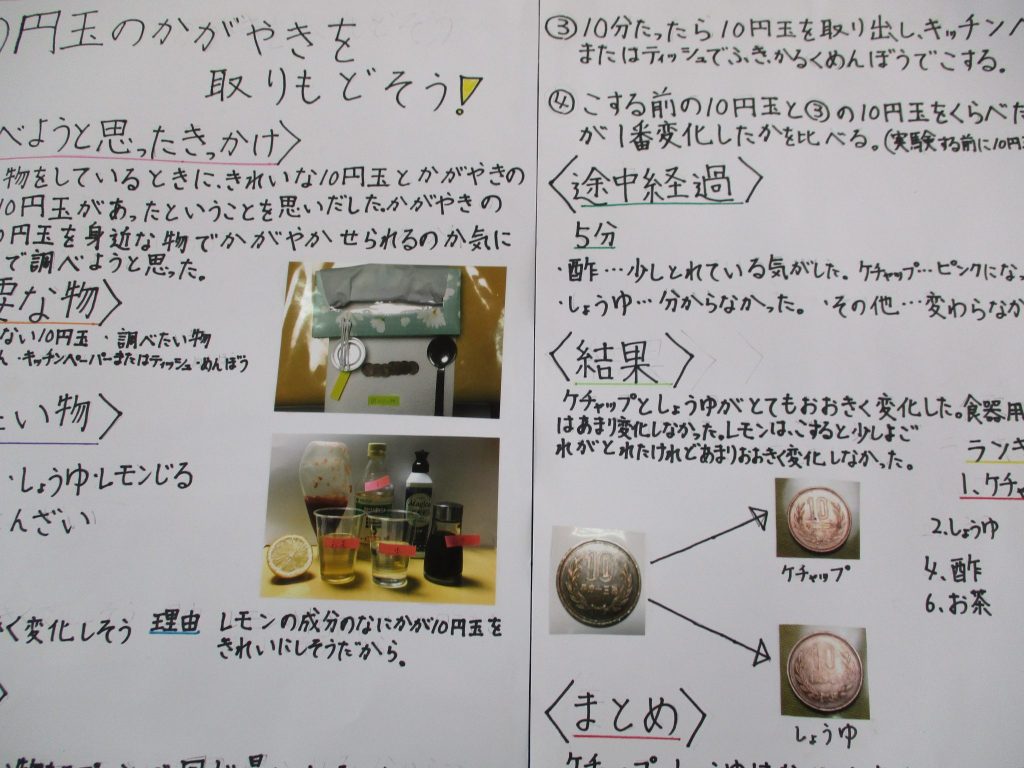 0円玉のかがやきを
取りもどそう!
べようと思ったきっかけ〉
物をしているときに、きれいな10円玉とかがやきの
10円玉があったということを思いだした。かがやきの
0円玉を身近な物でかがやかせられるのか気に
で調べようと思った。
要な物〉
ない10円玉 ・調べたい物
ん・キッチンペーパーまたはティッシュ・めんぼう
たい物〉
・しょうゆ・レモンじる
んざい
く変化しそう 理由 レモンの成分のなにかが10円玉を
きれいにしそうだから。
③10分たったら10円玉を取り出し、キッチンペ
またはティッシュでふき、かるくめんぼうでこする。
④こする前の10円玉と③の10円玉をくらべた
が1番変化したかを比べる。(実験する前に10円
〈途中経過〉
5分
・酢…少しとれている気がした。ケチャップ…ピンクになっ
・しょうゆ…分からなかった。・その他…変わらなか
〈結果〉
ケチャップとしょうゆがとてもおおきく変化した。食器用
はあまり変化しなかった。レモンは、こすると少しよご
れがとれたけれどあまりおおきく変化しなかった。
ランキ
1、ケチャ
2.しょうゆ
4、酢
6、お茶
10
ケチャップ
10
10
しょうゆ
〈まとめ〉